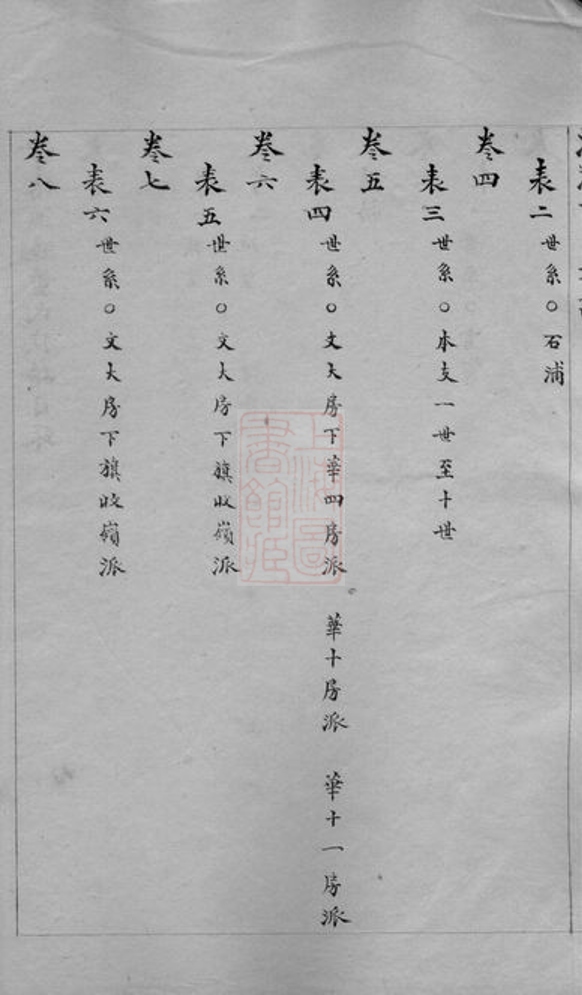 表二世系○石浦
卷四
表三世系○本支一世至十世
卷五
表四世系○文大房下華四房派 華十房派 華十一房派
卷六
表五世系○文大房下旗收嶺派
卷七
表六世系○文大房下旗收嶺派
卷八
上海圖書館藏